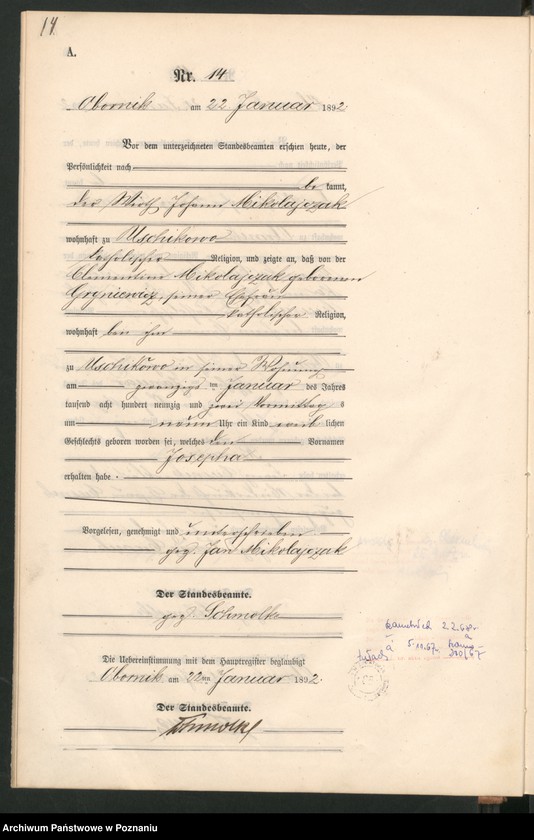 14.
A.
Nr. 14
Obornik am 22 Januar 1892
Vor dem unterzeichneten Standesbeamten erschien heute, der
Persönlichkeit nach
be kannt,
der Wirth Johann Mikolajczak
wohnhaft zu Uschikowo
katholischer Religion, und zeigte an, daß von der
Clementine Mikolajczak geborenen
seiner Ehefrau
katholischer Religion,
wohnhaft bei ihm
zu Uschikowo in seiner Wohnung
am zwanzigsten Januar des Jahres
tausend acht hundert neunzig und zwei Vormittags
um neun Uhr ein Kind weib lichen
Geschlechts geboren worden sei, welches den Vornamen
Josepha
erhalten habe.
Vorgelesen, genehmigt und unterschrieben
gez. Jan Mikolajczak
Der Standesbeamte.
gez. Schmolke
Die Uebereinstimmung mit dem Hauptregister beglaubigt
Obornik am 22ten Januar 1892.
Der Standesbeamte.
Schmolke
Archiwum Państwowe w Poznaniu